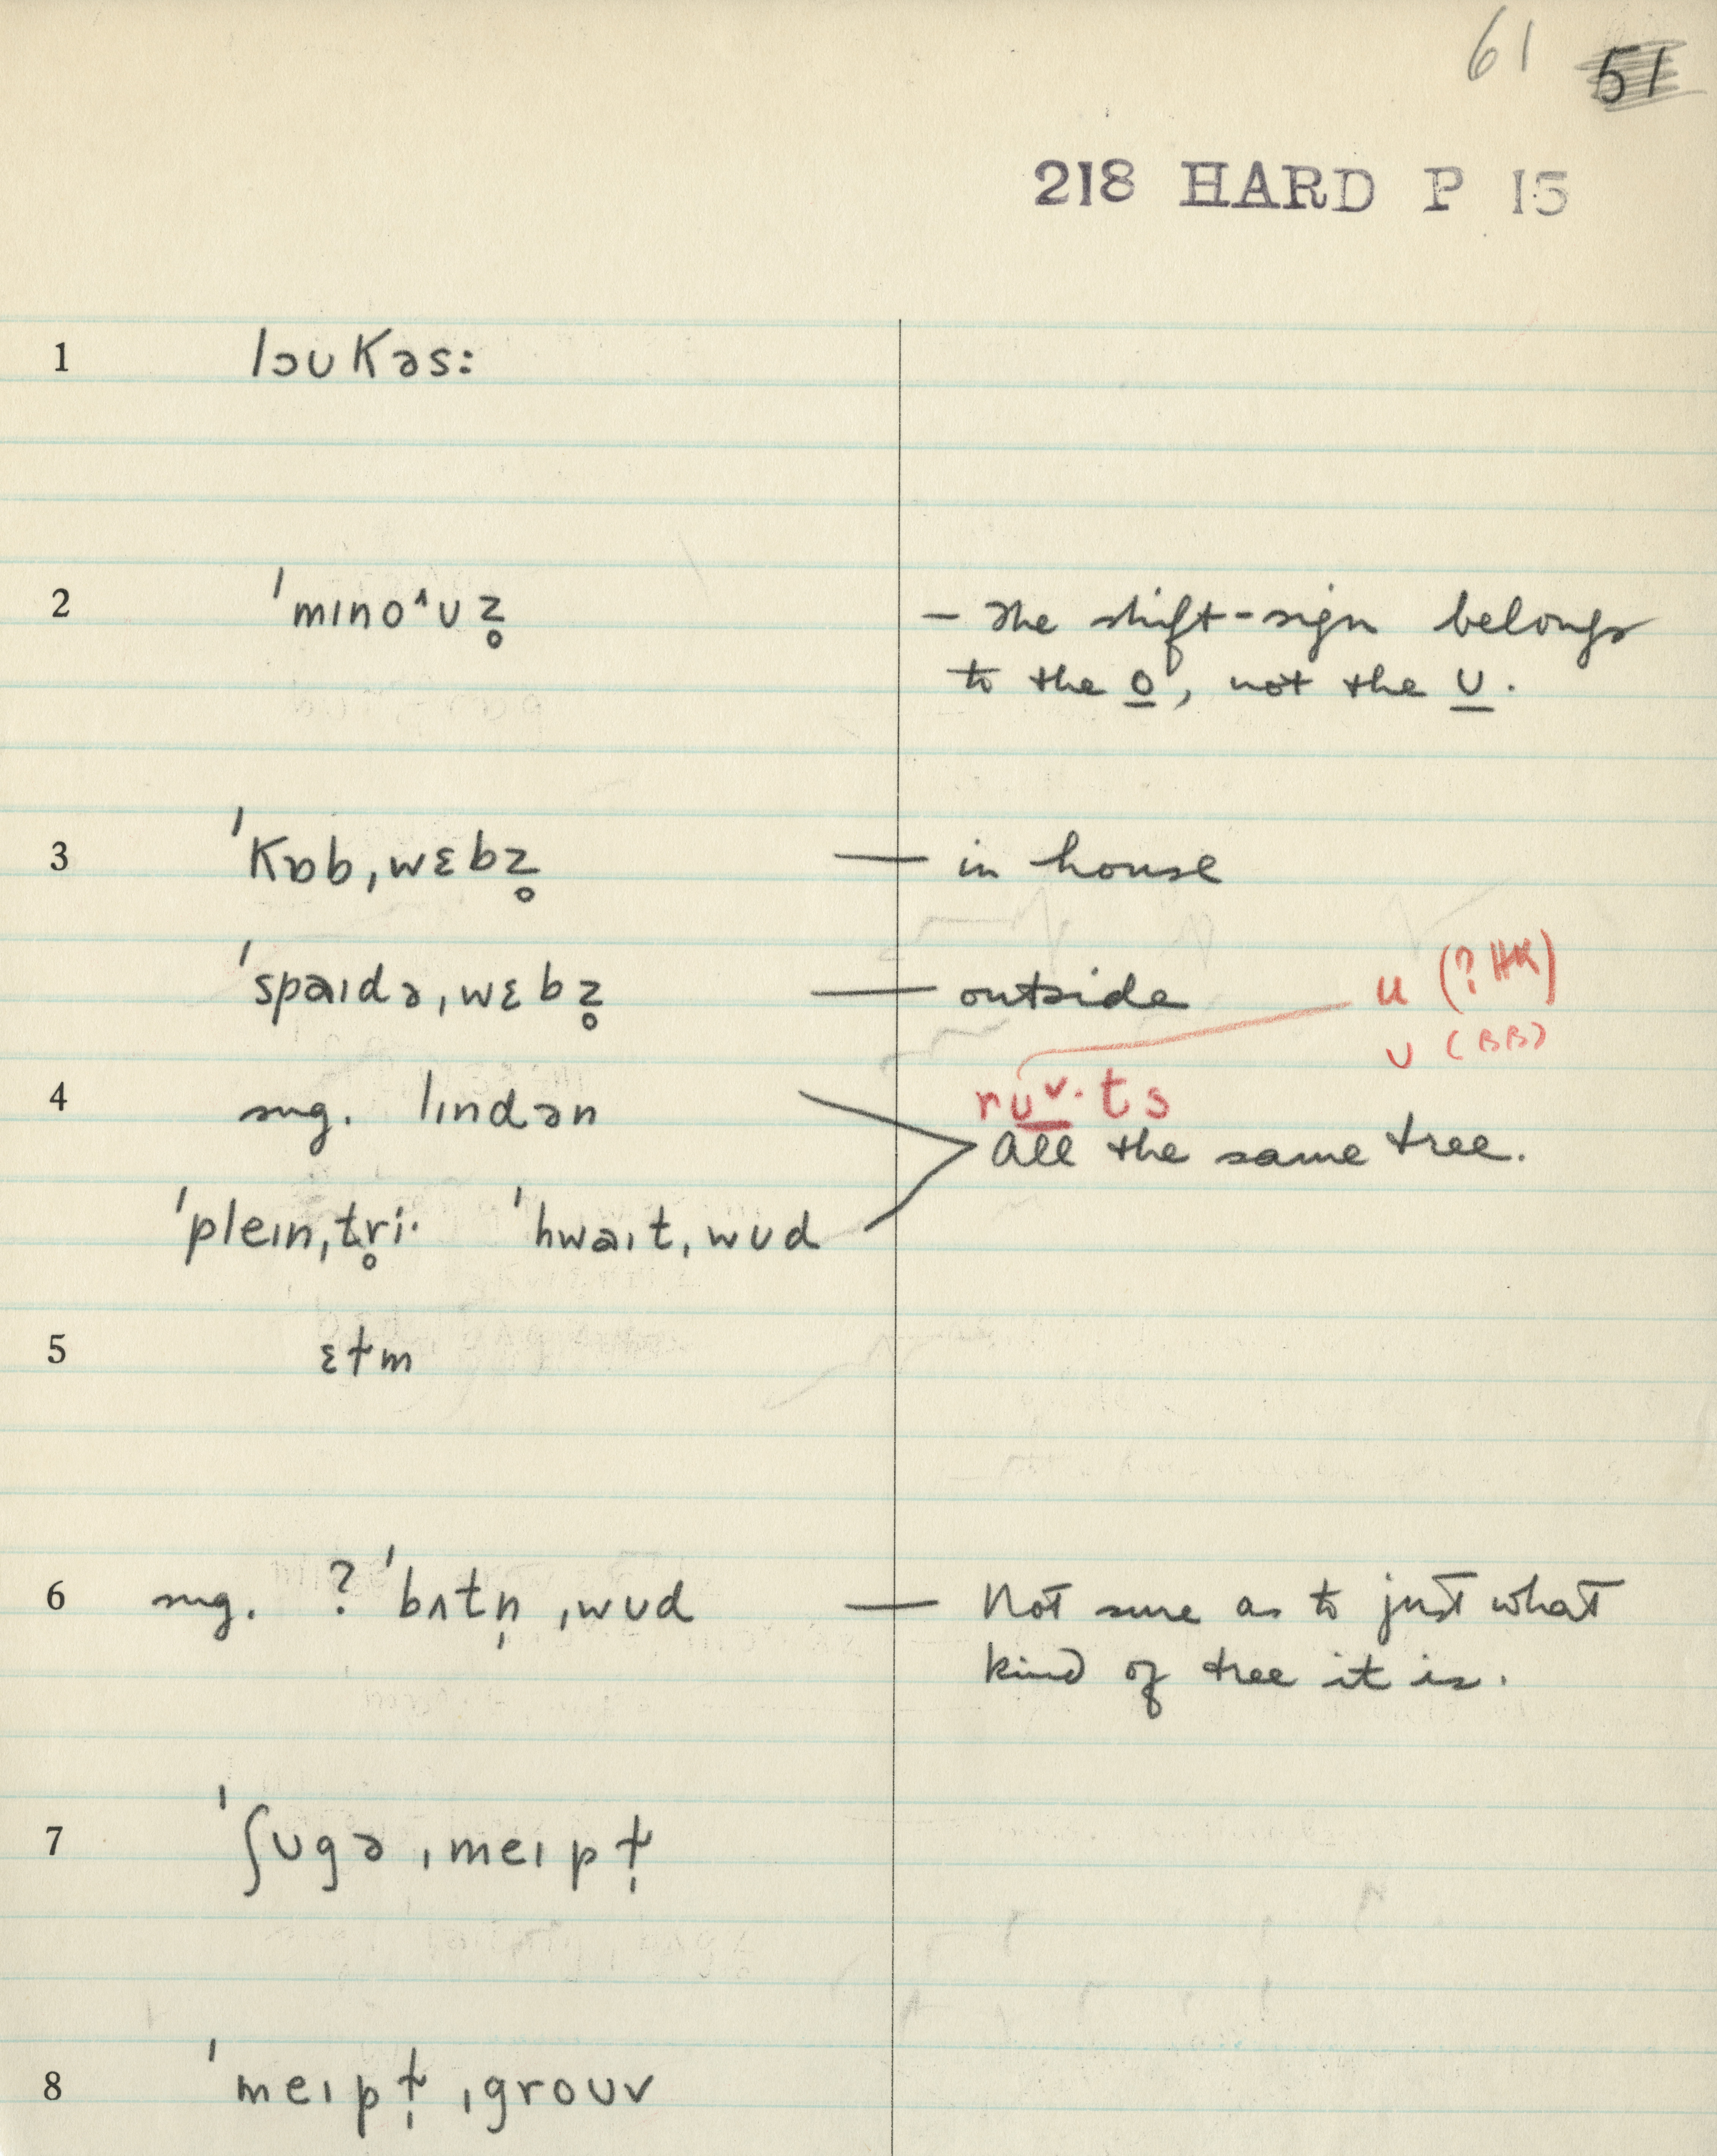 61 51
218 HARD P 15
1 lɔʊkəs:
2 ˈmɪno˄ʊz̥ – The shift-sign belongs
to the o, not the ʊ.
3 ˈkɒb,wɛbz̥ — in house
ˈspaɪdə,wɛbz̥ — outside u (? HK)
ʊ (BB)
4 sug. lɪndən rʊᵛ·ts
All the same tree.
ˈpleɪn,tr̥i· ˈhwaɪt,wʊd
5 ɛɫm
6 sug. ? ˈbʌtn̩ ,wʊd — Not sure as to just what
kind of tree it is.
7 ˈʃʊgə ,meɪpɫ̩
8 ˈmeɪpɫ̩ ,groʊv